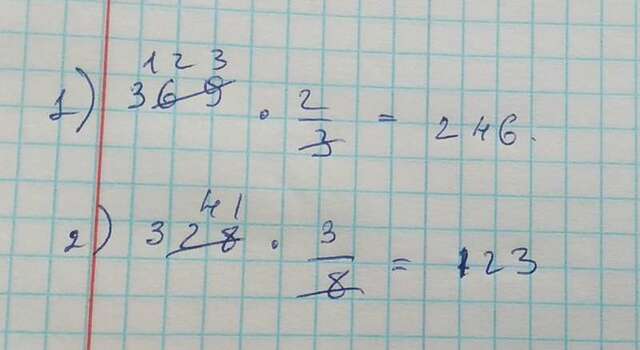 1 2 3
1) 369 · 2/3 = 246.
41
2) 328 · 3/8 = 123